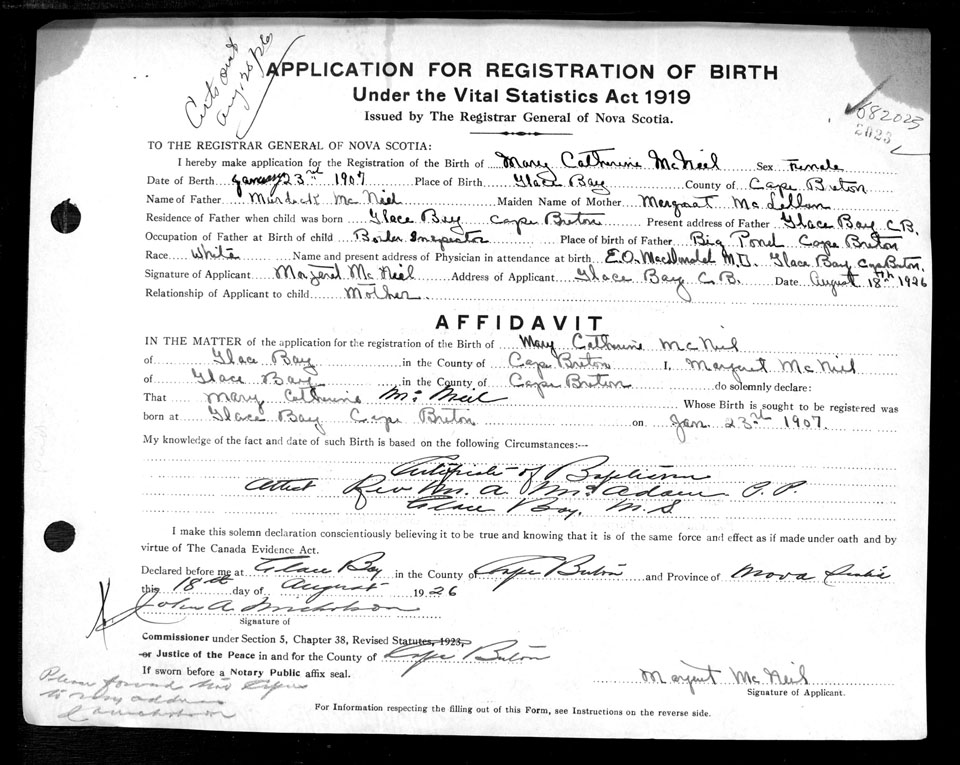 Certs sent
Aug. 28/26
APPLICATION FOR REGISTRATION OF BIRTH
Under the Vital Statistics Act 1919
Issued by The Registrar General of Nova Scotia.
682023
2023
TO THE REGISTRAR GENERAL OF NOVA SCOTIA:
I hereby make application for the Registration of the Birth of Mary Catherine McNeil Sex Female
Date of Birth January 23rd 1907 Place of Birth Glace Bay County of Cape Breton
Name of Father Murdock McNeil Maiden Name of Mother Margaret McLellan
Residence of Father when child was born Glace Bay Cape Breton Present address of Father Glace Bay C.B.
Occupation of Father at Birth of child Boiler Inspector Place of birth of Father Big Pond Cape Breton
Race White Name and present address of Physician in attendance at birth E.O. MacDonald M.D. Glace Bay Cape Breton.
Signature of Applicant Margaret McNeil Address of Applicant Glace Bay C.B. Date August 18th 1926
Relationship of Applicant to child Mother
AFFIDAVIT
IN THE MATTER of the application for the registration of the Birth of Mary Catherine McNeil
of Glace Bay in the County of Cape Breton I, Margaret McNeil
of Glace Bay in the County of Cape Breton do solemnly declare:
That Mary Catherine McNeil Whose Birth is sought to be registered was
born at Glace Bay Cape Breton on Jan. 23rd 1907.
My knowledge of the fact and date of such Birth is based on the following Circumstances:--
Certificate of Baptism
Attest Rev M. A. McAdam P.P.
Glace Bay. N.S
I make this solemn declaration conscientiously believing it to be true and knowing that it is of the same force and effect as if made under oath and by
virtue of The Canada Evidence Act.
Declared before me at Glace Bay in the County of Cape Breton and Province of Nova Scotia
this 18th day of August 1926
John A. Nicholson
Signature of
Commissioner under Section 5, Chapter 38, Revised Statutes, 1923,
or Justice of the Peace in and for the County of Cape Breton
If sworn before a Notary Public affix seal.
Margaret McNeil
Signature of Applicant.
Please forward this
to my address
Nicholson
For Information respecting the filling out of this Form, see Instructions on the reverse side.